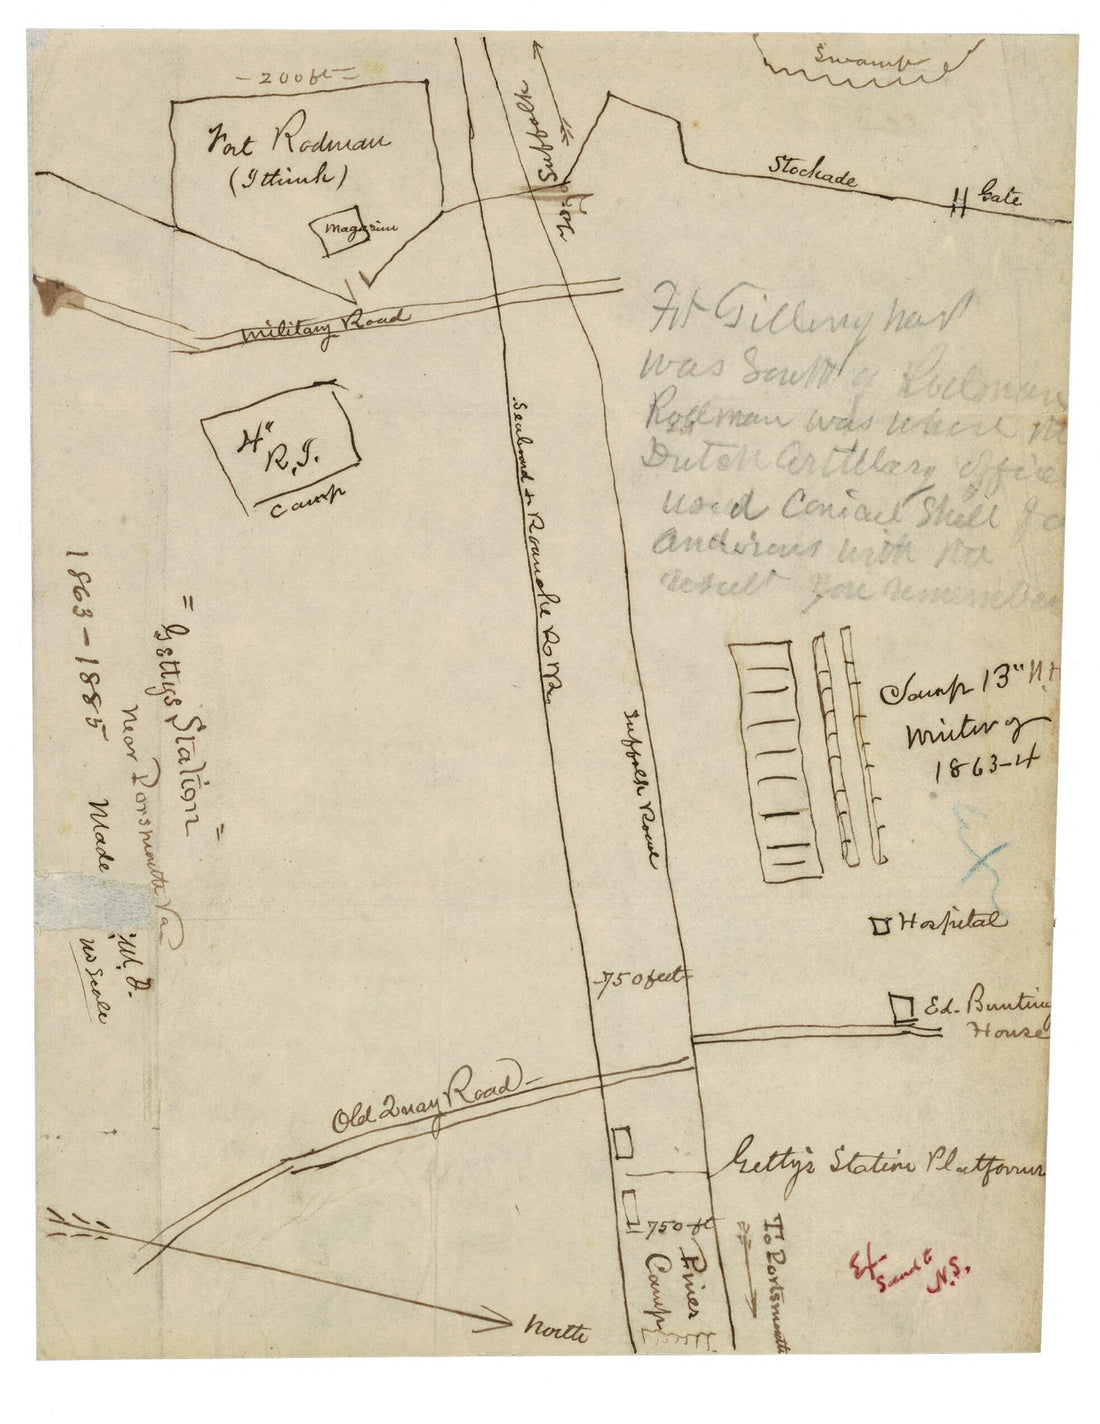 Swamp
- 200 ft =
Fort Rodman
(I think)
Magazine
To Suffolk
Stockade
Gate
Military Road
Ft Tillinghast
was South of Rodman
Rodman was where the
Dutch Artillery office
used Conical Shell
with no
result you remember
4"
R.I.
Camp
Seaboard & Roanoke R.W.R.
Suffolk Road
Camp 13" N.H
Winter of
1863-4
Hospital
Ed. Bunting
House
-750 feet-
Old Quay Road -
Getty's Station Platforms
750 ft
Camp
To Portsmouth
North
Ex-
N.S.
= Gettys Station =
Near Porsmouth Va
1863-1885 Made
no Scale